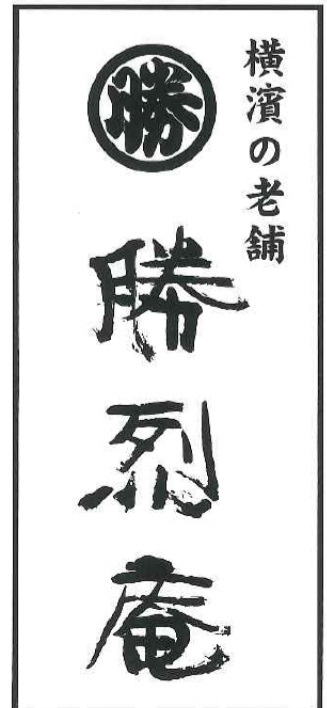 横濱の老舗
勝
勝烈庵